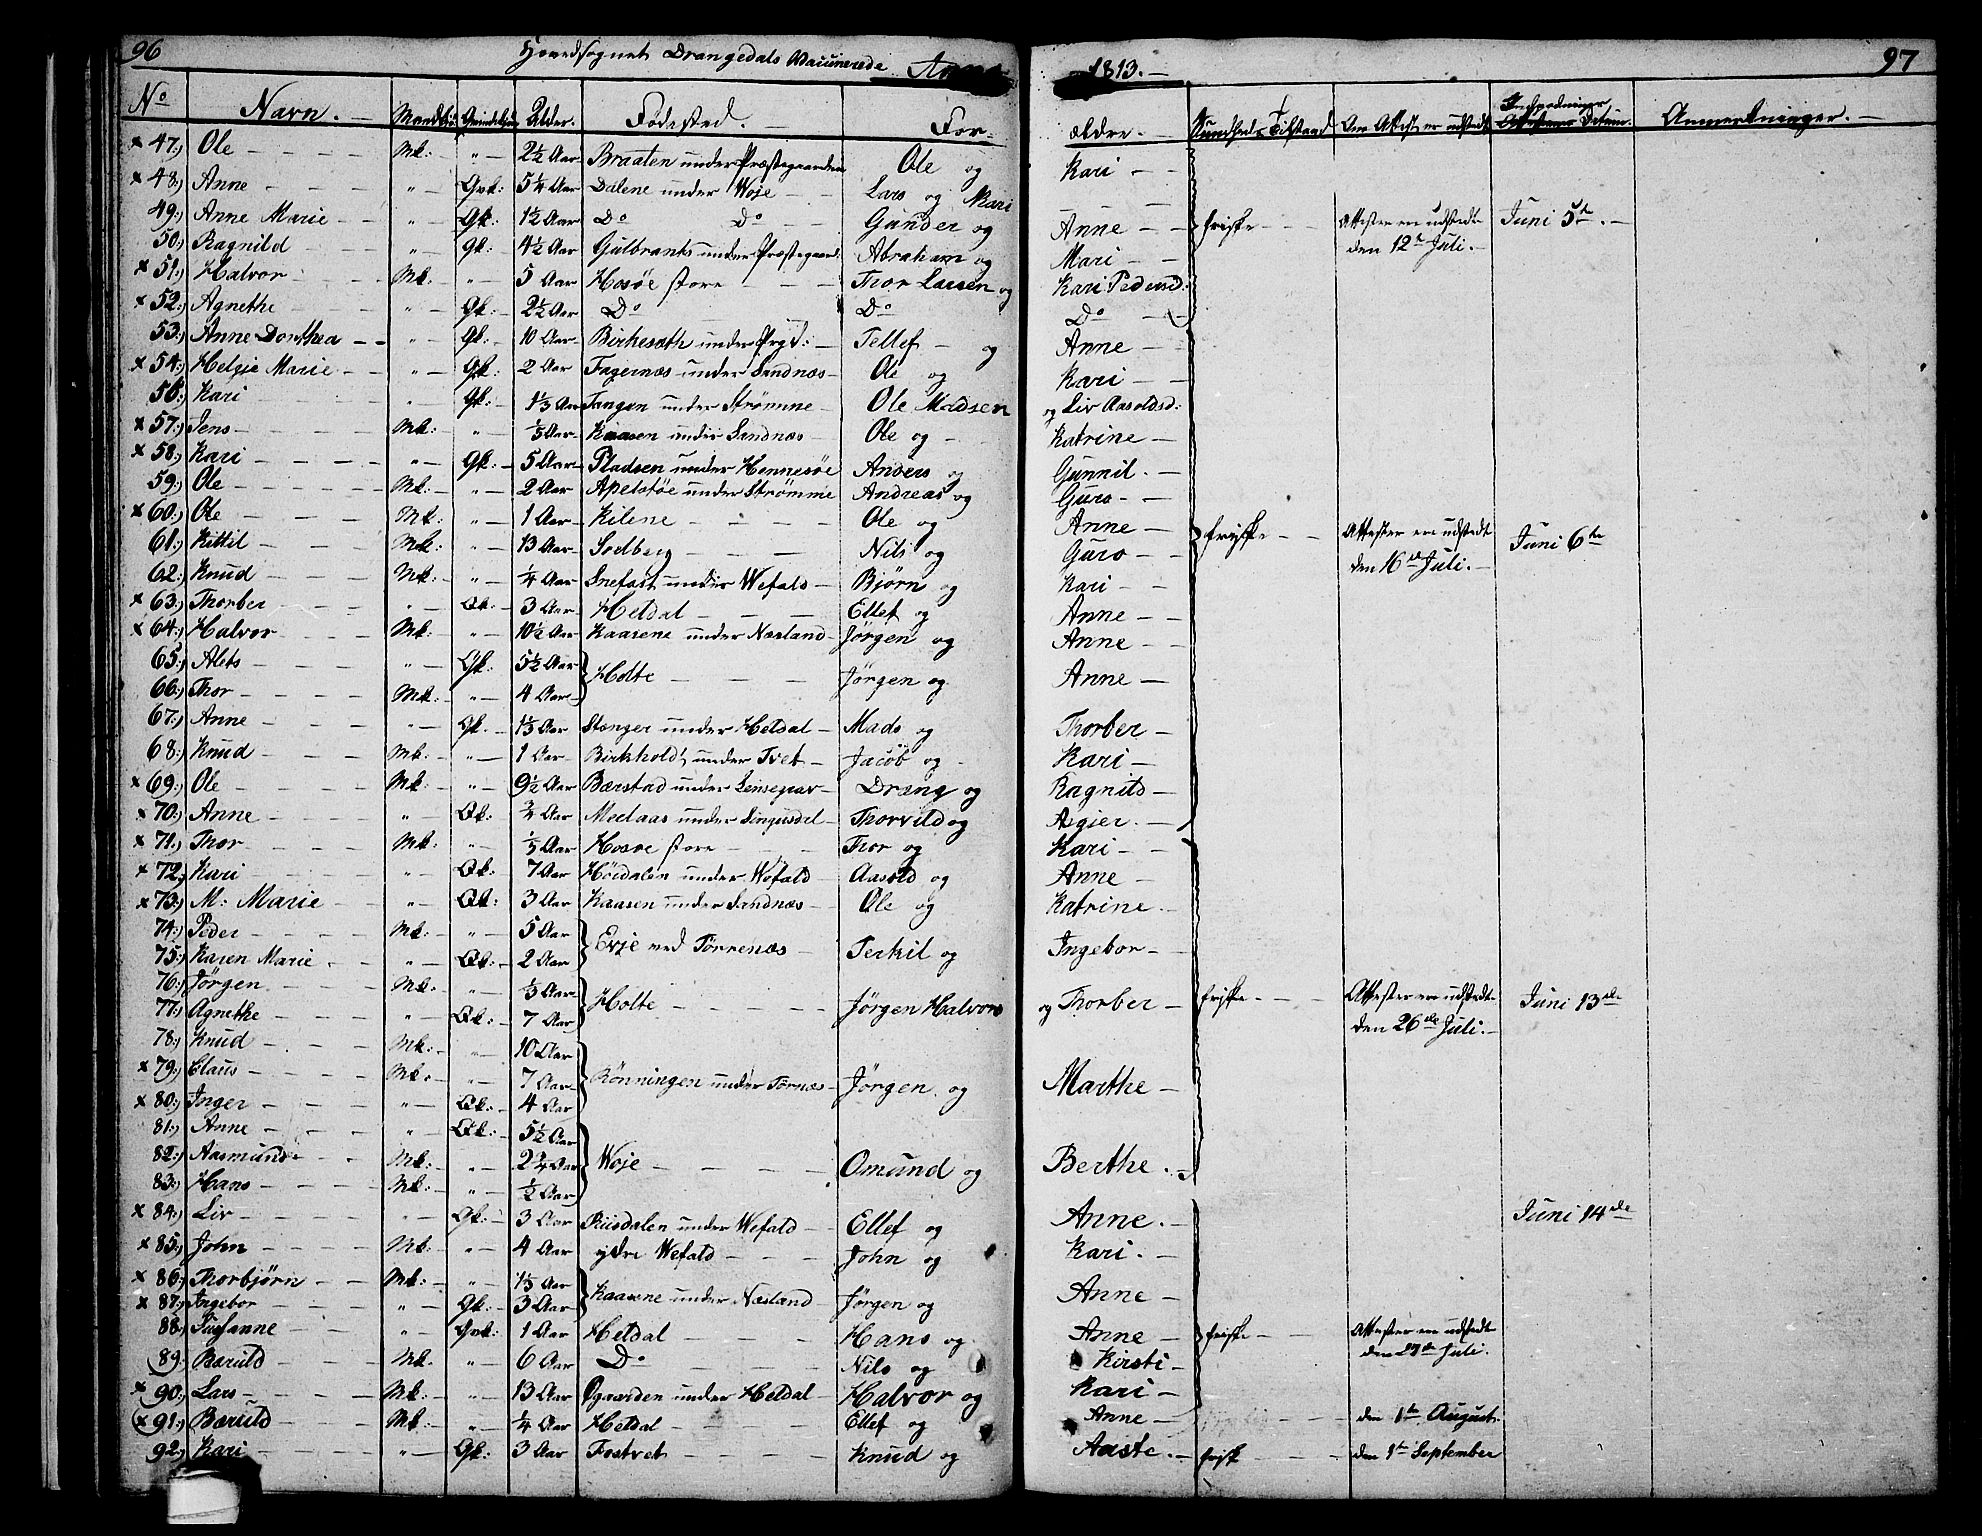 96 Hovedsognet Drangedals Vaccinerede Anno 1813. — 97
No Navn. — Mandkiøn Qvindekiøn Alder. Fødested. — For- ældre. — Sundheds Tilstand Om Attest er udstedt Indpodnings Datum. Anmerkninger. —
x 47:) Ole — Mk: „ — 2½ Aar Braaten under Præstegaarden Ole og Kari —
x 48:) Anne — „ — Qvk: 5¼ Aar Dalene under Woje Lars og Kari
49:) Anne Marie — „ Qk: 1½ Aar Do Do Gunder og Anne — friske — Attester ere udstedt Juni 5te —
50:) Ragnild „ — Qk: 4½ Aar Gulbrants under Præstegaard: Abraham og Mari — den 12te Juli. —
x 51:) Halvor — Mk: „ — 5 Aar Hosøe store — Thor Larsen og Kari Pedersd:
x 52:) Agnethe „ — Qk: 2½ Aar Do Do Do
53:) Anne Dorthea — „ — Qk: 10 Aar Birkesæth under Prgd: — Tellef — og Anne —
x 54:) Helgie Marie — „ — Qk: 2 Aar Fagernæs under Sandnæs — Ole og Kari —
56:) Kari „ — Qk: — 1⅓ Aar Tangen under Strømme — Ole Madsen og Liv Aasoldsd:
x 57:) Jens — Mk: „ ⅓ Aar Kaasen under Sandnæs — Ole og — Katrine —
x 58:) Kari — „ — Qk: — 5 Aar Pladsen under Hennesøe Anders og Gunnil. —
59:) Ole — Mk: — „ — 2 Aar Apelstøe under Strømme Andreas og Guro —
x 60:) Ole — Mk: „ — 1 Aar Kilene — Ole og Anne — friske — Attester ere udstedt Juni 6te
61:) Kittil — Mk: „ — 13 Aar Solberg — Nils og Guro — den 16de Juli. —
62:) Knud — Mk: — „ — ¼ Aar Snefast under Wefald — Bjørn og Kari —
x 63:) Thorber „ — Qk: — 3 Aar Heldal — Ellef og Anne —
x 64:) Halvor — Mk: „ — 10½ Aar Kaasene under Næsland — Jørgen og Anne —
65:) Alets — „ — Qk: 5½ Aar Holte — Jørgen og Anne —
66:) Thor — Mk: „ — 4 Aar
67:) Anne — „ — Qk: — 1⅓ Aar Stenger under Heldal — Mads og Thorber —
68:) Knud — Mk: „ — 1 Aar Birkhold under Tvet — Jacob og Kari —
x 69:) Ole — Mk: „ — 9½ Aar Bærstad under — Dræng og Ragnild —
x 70:) Anne — „ Qk: ¾ Aar Medaas under — Thorvild og Asgier. —
x 71:) Thor Mk: „ — ⅓ Aar Hosøe store — Thor og Kari —
x 72:) Kari — „ — Qk: 7 Aar Høidalen under Wefald — Aasold og Anne —
x 73:) M: Marie — „ — Qk: 3 Aar Kaasen under Sandnæs — Ole og Katrine. —
74:) Peder — Mk: „ — 5 Aar Evje ved Tørrenæs — Terkil og Ingebor —
75:) Karen Marie — „ — Qk: — 2 Aar
76:) Jørgen — Mk: „ — ⅓ Aar Holte — Jørgen Halvors og Thorber — friske — Attester ere udstedt Juni 13de
77:) Agnethe „ — Qk: — 7 Aar den 26de Juli. —
78:) Knud — Mk: — „ — 10 Aar
x 79:) Claus — Mk: „ — 7 Aar Rønningen under Tørnæs — Jørgen og Marthe —
x 80:) Inger — „ — Qk: — 4 Aar
81:) Anne — „ — Qk: — 5½ Aar
82:) Aasmund — Mk: „ — 2¾ Aar Woje — Omund og Berthe. —
83:) Hans — Mk: „ — ½ Aar
x 84:) Liv — „ — Qk: — 3 Aar Riisdalen under Wefald — Ellef og Anne. — Juni 14de
x 85:) John — Mk: „ — 4 Aar ydre Wefald — John og Kari. —
x 86:) Thorbjørn — Mk: „ — 1⅓ Aar Kaasene under Næsland — Jørgen og Anne —
x 87:) Ingebor — „ — Qk: — 3 Aar
88:) Susanne „ — Qvk: 1 Aar Heldal — Hans og Anne — friske — Attester ere udstedt
89:) Bæruld — Mk. „ — 6 Aar Do Nils og Kirsti — den 27de Juli.
x 90:) Lars — Mk: „ — 13 Aar Øgaarden under Heldal — Halvor og Kari —
x 91:) Bæruld — Mk: „ — ¼ Aar Heldal — Ellef og Anne — den 1te August.
92:) Kari — „ — Qk: — 3 Aar Fostvet — Knud og Aaste. — frisk — den 1te September